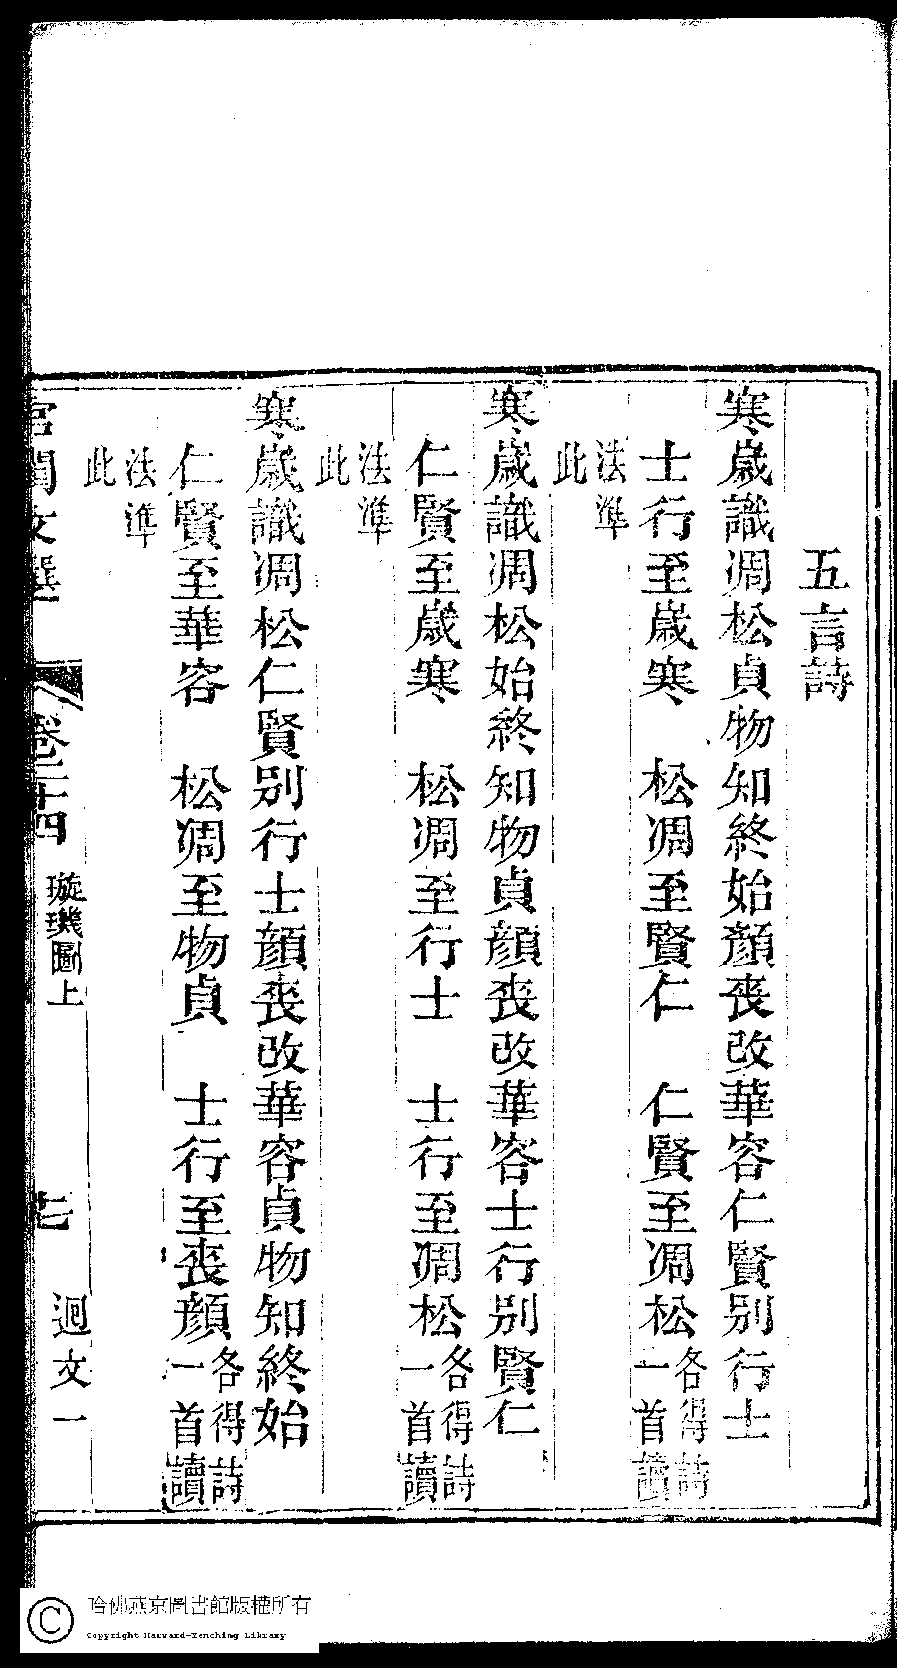 五言詩
寒歲識凋松貞物知終始顏喪改華容仁賢別行士
士行至歲寒　松凋至賢仁　仁賢至凋松各得詩一首讀
法準此
寒歲識凋松始終知物貞顏喪改華容士行別賢仁
仁賢至歲寒　松凋至行士　士行至凋松各得詩一首讀
法準此
寒歲識凋松仁賢別行士顏喪改華容貞物知終始
仁賢至華容　松凋至物貞　士行至喪顏各得詩一首讀
法準此
宮閨文選　卷二十四　璇璣圖上　迴文一
哈佛燕京圖書館版權所有
Copyright Harvard-Yenching Library